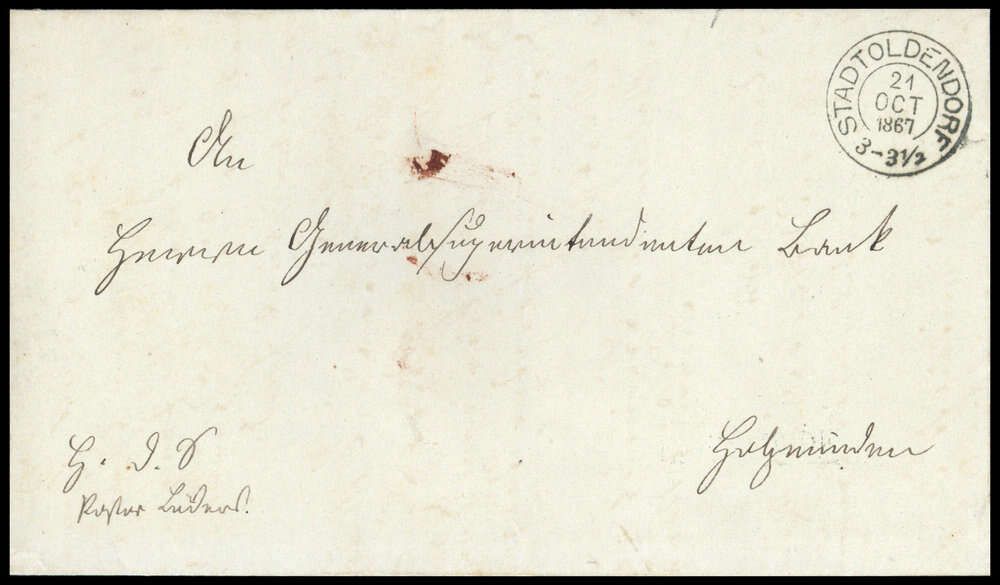 STADTOLDENDORF
21
OCT
1867
3-3½
An
Herrn Generalsuperintendenten Bank
Holzminden
H. d. S
Pastor Lüders.